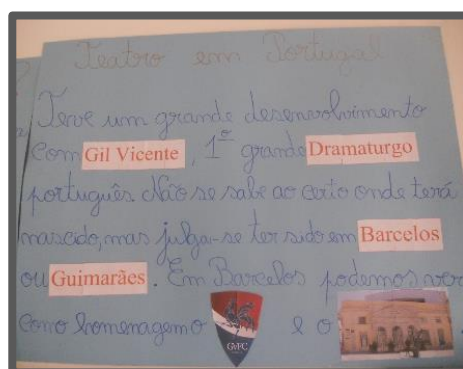 Teatro em Portugal
Teve um grande desenvolvimento
com Gil Vicente, 1º grande Dramaturgo
português. Não se sabe ao certo onde terá
nascido, mas julga-se ter sido em Barcelos
ou Guimarães. Em Barcelos podemos ver
como homenagem o
GVFC
e o